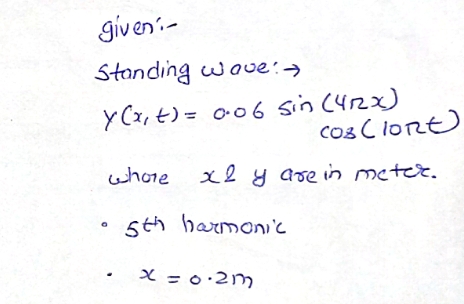 given:-
Standing wave:→
y(x,t) = 0.06 sin (4πx)
cos(10πt)
where x & y are in meter.
• 5th harmonic
• x = 0.2m